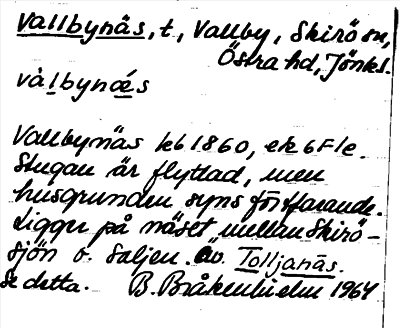 Vallbynäs, t, Vallby, Skirö sn,
Östra hd, Jönk l.
vàlbynǽs
Vallbynäs kb 1860, ek 6F1e.
Stugan är flyttad, men
husgrunden syns fortfarande.
Ligger på näset mellan Skirö-
sjön o. Saljen. Äv. Tolljanäs.
Se detta. B. Bråkenhielm 1964